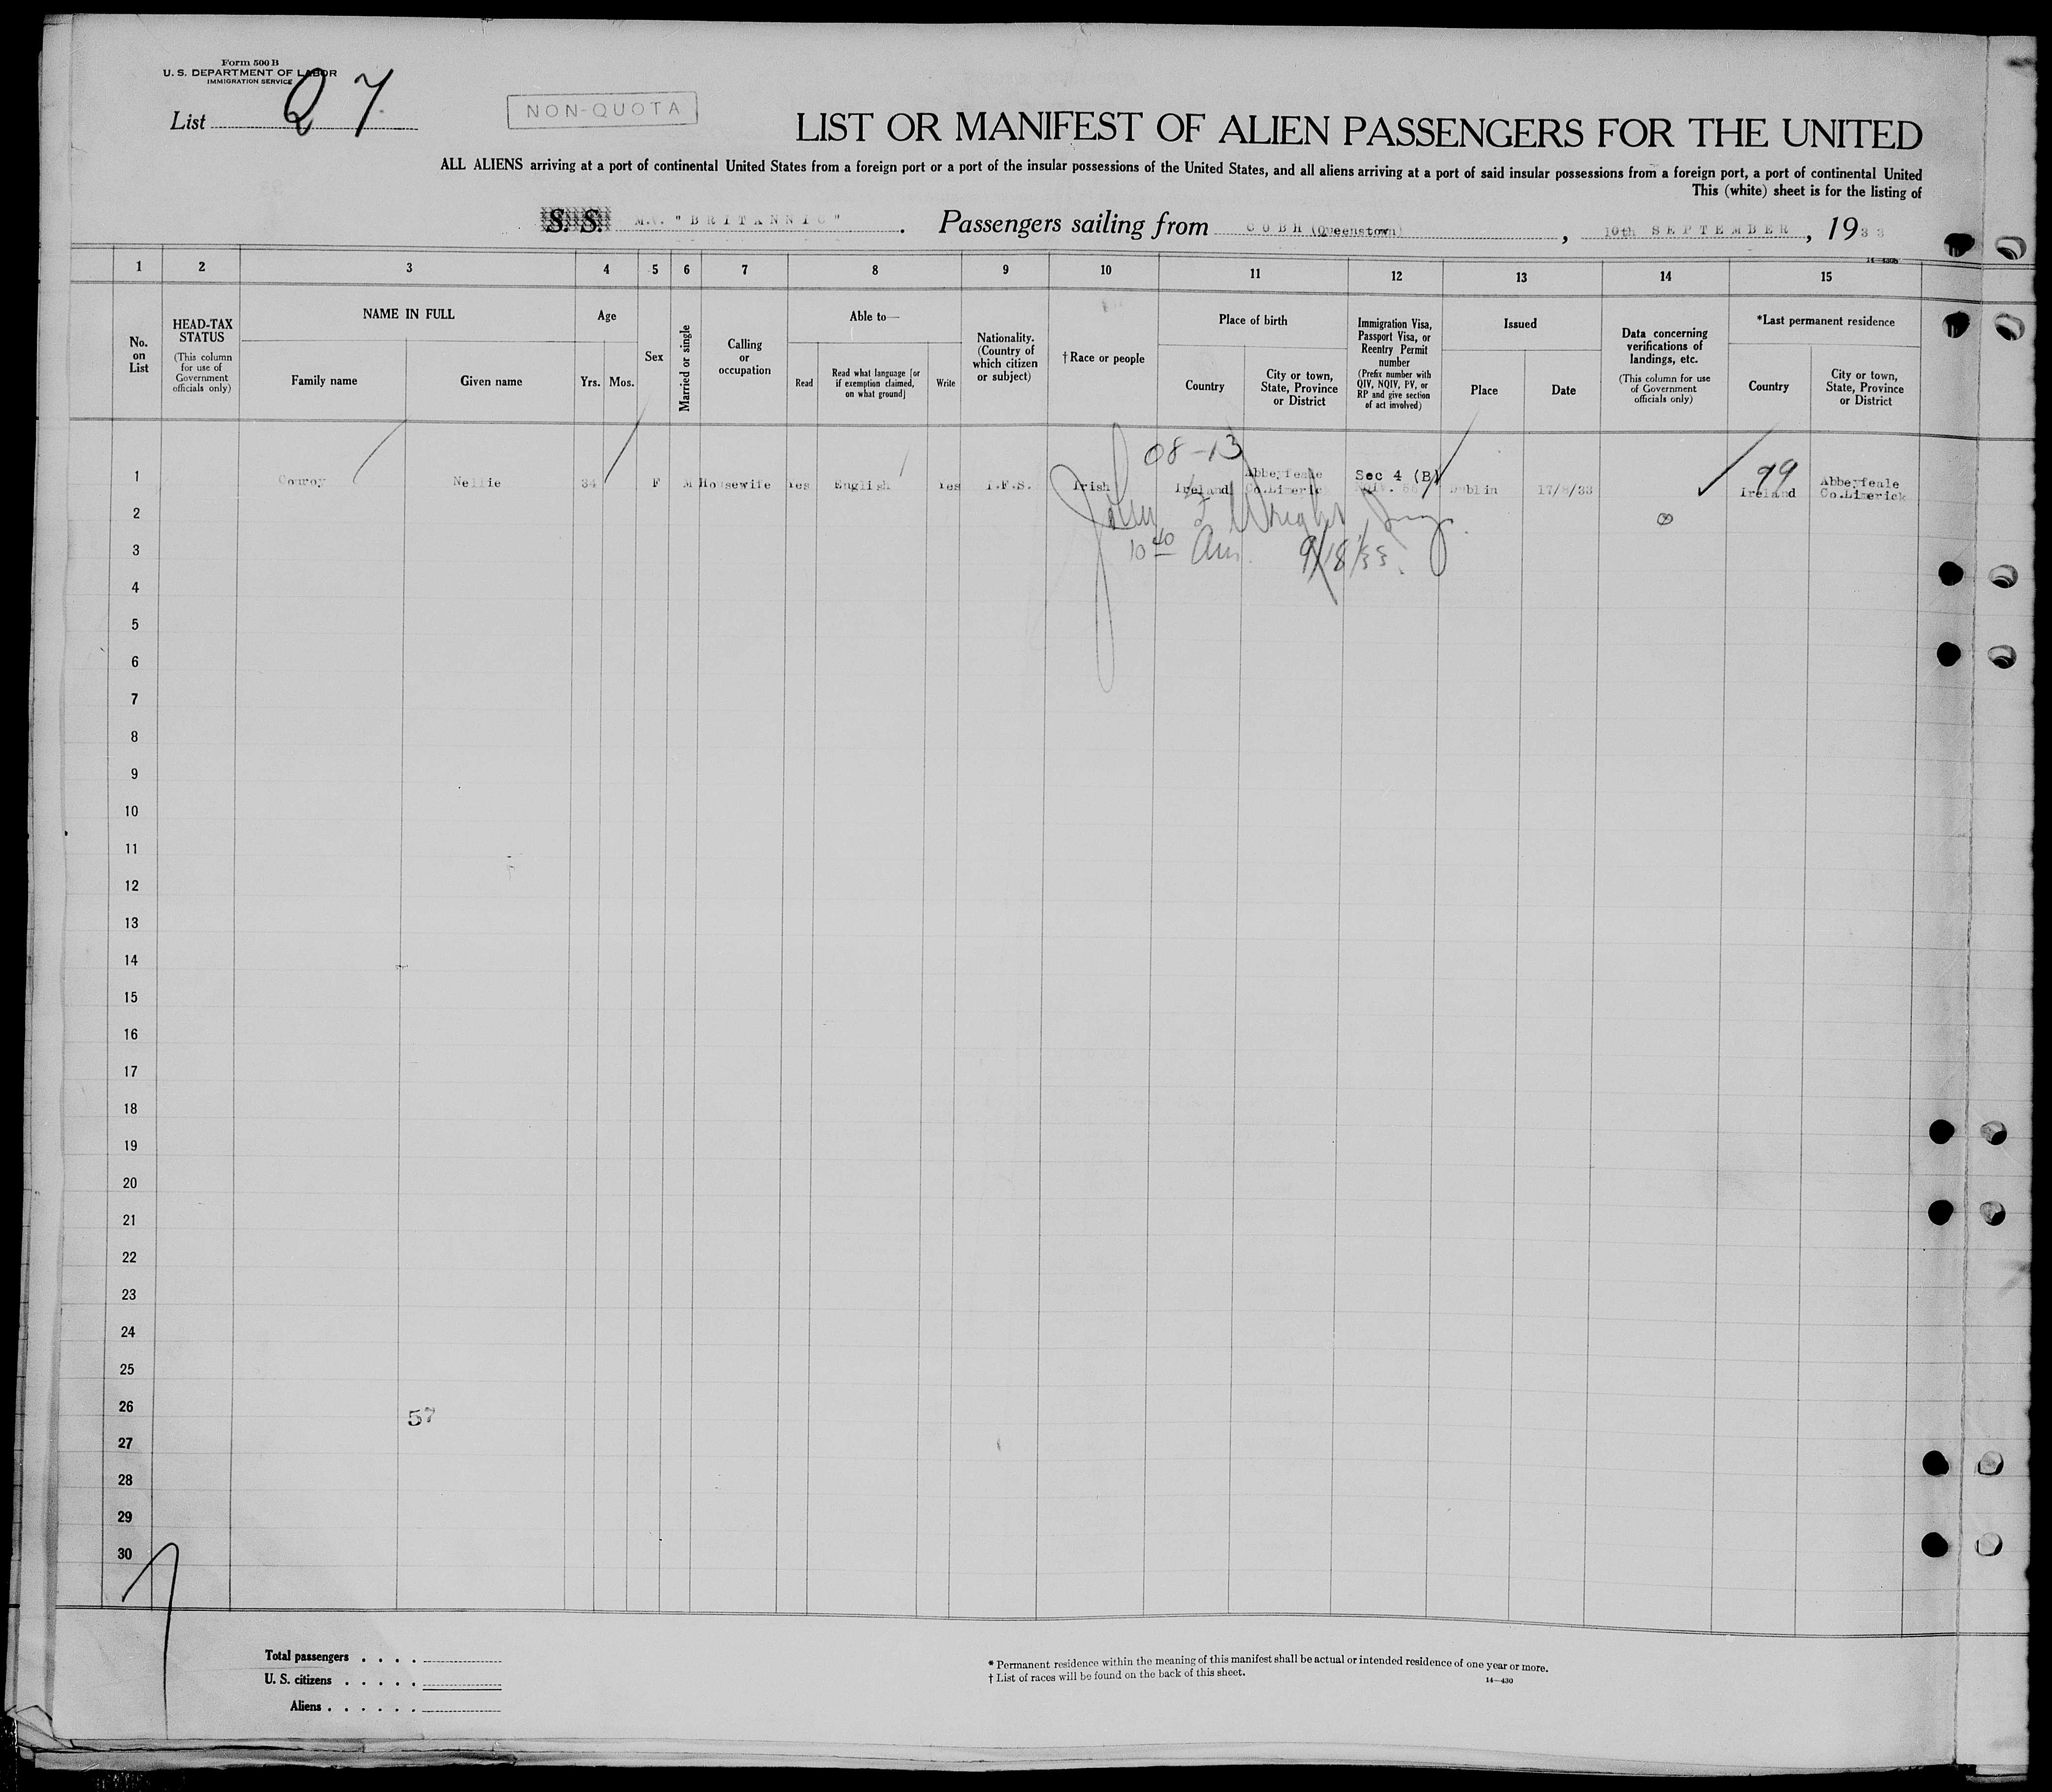 Form 500 B
U. S. DEPARTMENT OF LABOR
IMMIGRATION SERVICE
List 27
NON-QUOTA
LIST OR MANIFEST OF ALIEN PASSENGERS FOR THE UNITED
ALL ALIENS arriving at a port of continental United States from a foreign port or a port of the insular possessions of the United States, and all aliens arriving at a port of said insular possessions from a foreign port, a port of continental United
This (white) sheet is for the listing of
S. S. M.V. "BRITANNIC". Passengers sailing from COBH (Queenstown), 10th SEPTEMBER, 1933
14—430b
1 2 3 4 5 6 7 8 9 10 11 12 13 14 15
No. on List
HEAD-TAX STATUS
(This column for use of Government officials only)
NAME IN FULL
Family name
Given name
Age
Yrs. Mos.
Sex
Married or single
Calling or occupation
Able to—
Read
Read what language [or if exemption claimed, on what ground]
Write
Nationality. (Country of which citizen or subject)
†Race or people
Place of birth
Country
City or town, State, Province or District
Immigration Visa, Passport Visa, or Reentry Permit number
(Prefix number with QIV, NQIV, PV, or RP and give section of act involved)
Issued
Place
Date
Data concerning verifications of landings, etc.
(This column for use of Government officials only)
*Last permanent residence
Country
City or town, State, Province or District
08-13
99
1 Conroy Nellie 34 F M Housewife Yes English Yes I.F.S. Irish Ireland Abbeyfeale Co.Limerick Sec 4 (B) NQIV. Dublin 17/8/33 Ireland Abbeyfeale Co.Limerick
John Wright
10 40 Am. 9/18/33.
2
3
4
5
6
7
8
9
10
11
12
13
14
15
16
17
18
19
20
21
22
23
24
25
26
57
27
28
29
30
Total passengers . . . .
U. S. citizens . . . . .
Aliens . . . . . .
* Permanent residence within the meaning of this manifest shall be actual or intended residence of one year or more.
† List of races will be found on the back of this sheet.
14—430